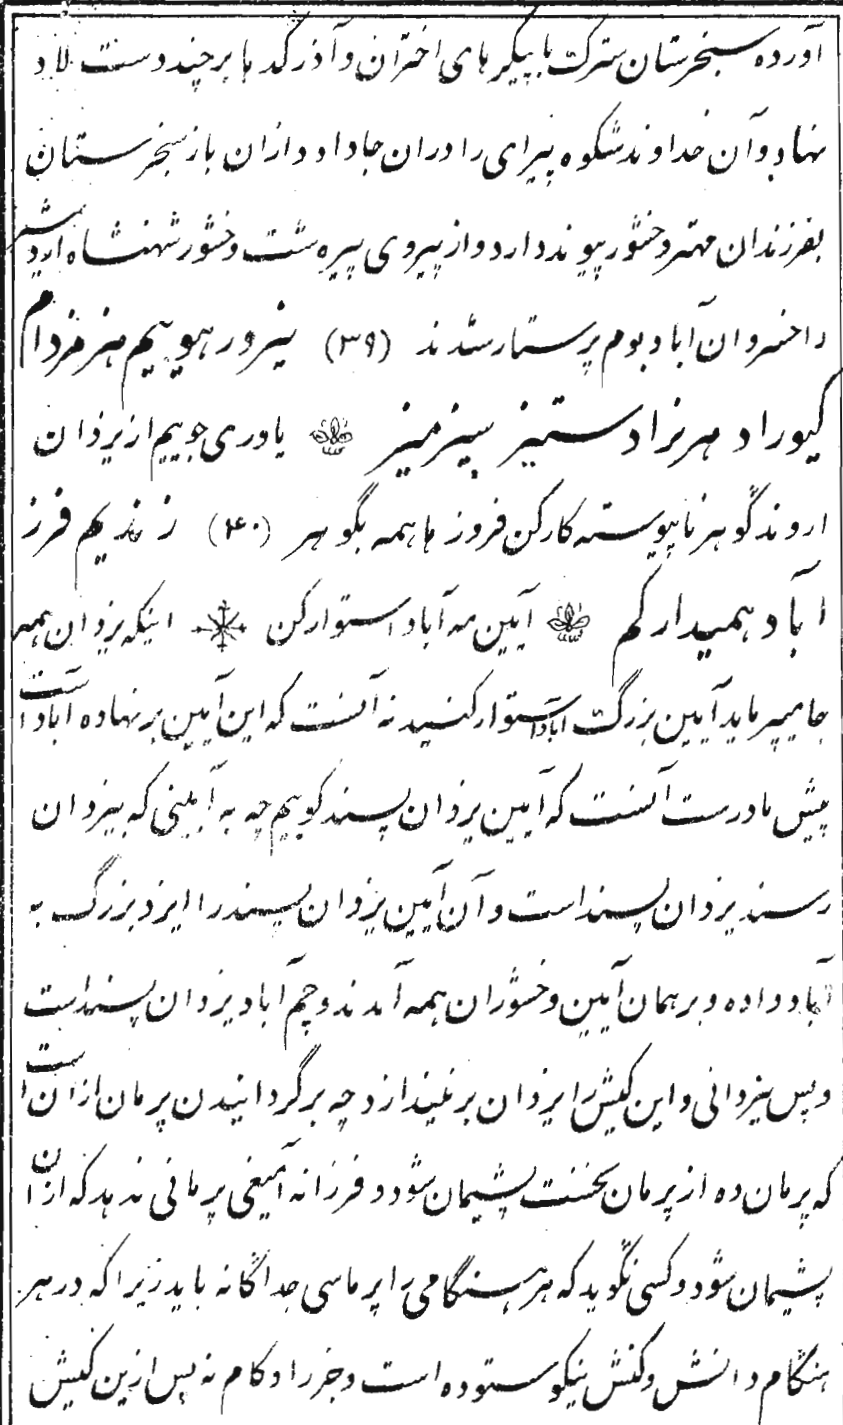 آورده سنجرستان سترک با پیکرهای اختران و آذر کدها برچند دست لاد
نهاد و آن خداوند شکوه پیرای را دران جا داد و ازان باز سنجرستان
بفرزندان مهتر وخشور پیوند دارد و از پیروی پیره شت وخشور شهنشاه اردشیر
را خسروان آباد بوم پرستار شدند (۳۹) نیرور هوییم هنر مزدام
کیوراد هرنراد ستیز سپز میز یاوری جوییم از یزدان
اروند گوهر ناپیوسته کارکن فروز ها همه بگوهر (۴۰) زندیم فرز
اباد همیدار کم آیین مه آباد استوار کن اینکه یزدان همه
جا میپرماید آیین بزرگ آباد استوار کنید نه آنست که این آیین برنهاده آباد است
پیش ما درست آنست که آیین یزدان پسند گوییم چه به آیینی که بیزدان
رسند یزدان پسند است و آن آیین یزدان پسند را ایزد بزرگ به
آباد داده و بر همان آیین وخشوران همه آمدند و چم آباد یزدان پسند است
و پس یزدانی و این کیش را یزدان بر نیندازد چه برگردانیدن پرمان ازان است
که پرمان ده از پرمان نخست پشیمان شود و فرزانه آمیغی پرمانی ندهد که ازان
پشیمان شود و کسی نگوید که هر هنگامی را پرماسی جداگانه باید زیرا که در هر
هنگام دانش و کنش نیکو ستوده است و جز راد کام نه پس ازین کیش